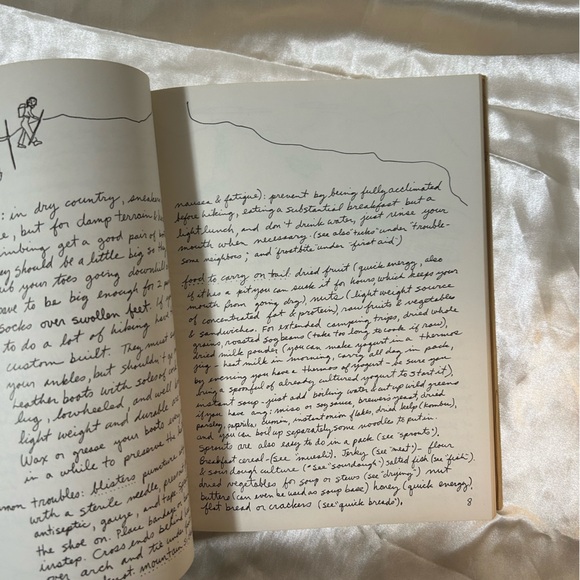 : in dry country, sneakers
, but for damp terrain &
climbing get a good pair of
they should be a little big so
your toes going downhill
have to be big enough for 2
socks over swollen feet. If
to do a lot of hiking
custom built. They must
your ankles, but shouldn't
leather boots with soles of
lug, low heeled, and well
light weight and durable
Wax or grease your boots
in a while to preserve the
troubles: blisters puncture
with a sterile needle,
antiseptic, gauze, and tape
the shoe on. Place bandage
instep. Cross ends behind
over arch and tie
mountain
nausea & fatigue): prevent by being fully acclimated
before hiking, eating a substantial breakfast but a
light lunch, and don't drink water, just rinse your
mouth when necessary. (see also "ticks" under "trouble-
some neighbors", and "frostbite" under "first aid")
food to carry on trail: dried fruit (quick energy, also
if it has a pit you can suck it for hours which keeps your
mouth from going dry), nuts (light weight source
of concentrated fat & protein), raw fruits & vegetables
& sandwiches. For extended camping trips, dried whole
grains, roasted soybeans (take too long to cook if raw),
dried milk powder (you can make yogurt in a thermos
jug - heat milk in morning, carry all day in pack,
by evening you have a thermos of yogurt - be sure you
bring a spoonful of already cultured yogurt to start it),
instant soup - just add boiling water & cut up wild greens
if you have any: miso or soy sauce, brewer's yeast, dried
parsley, paprika, cumin, instant onion flakes, dried kelp (kombu),
and you can boil up separately some noodles to put in.
Sprouts are also easy to do in a pack (see "sprouts"),
Breakfast cereal - (See "muesli"). Jerky (see "meat") - flour
& sourdough culture (*See "sourdough") salted fish (see "fish")
dried vegetables for soup or stews (see "drying") nut
butters (can even be used as soup base) honey (quick energy),
flat bread or crackers (see "quick breads"),
8